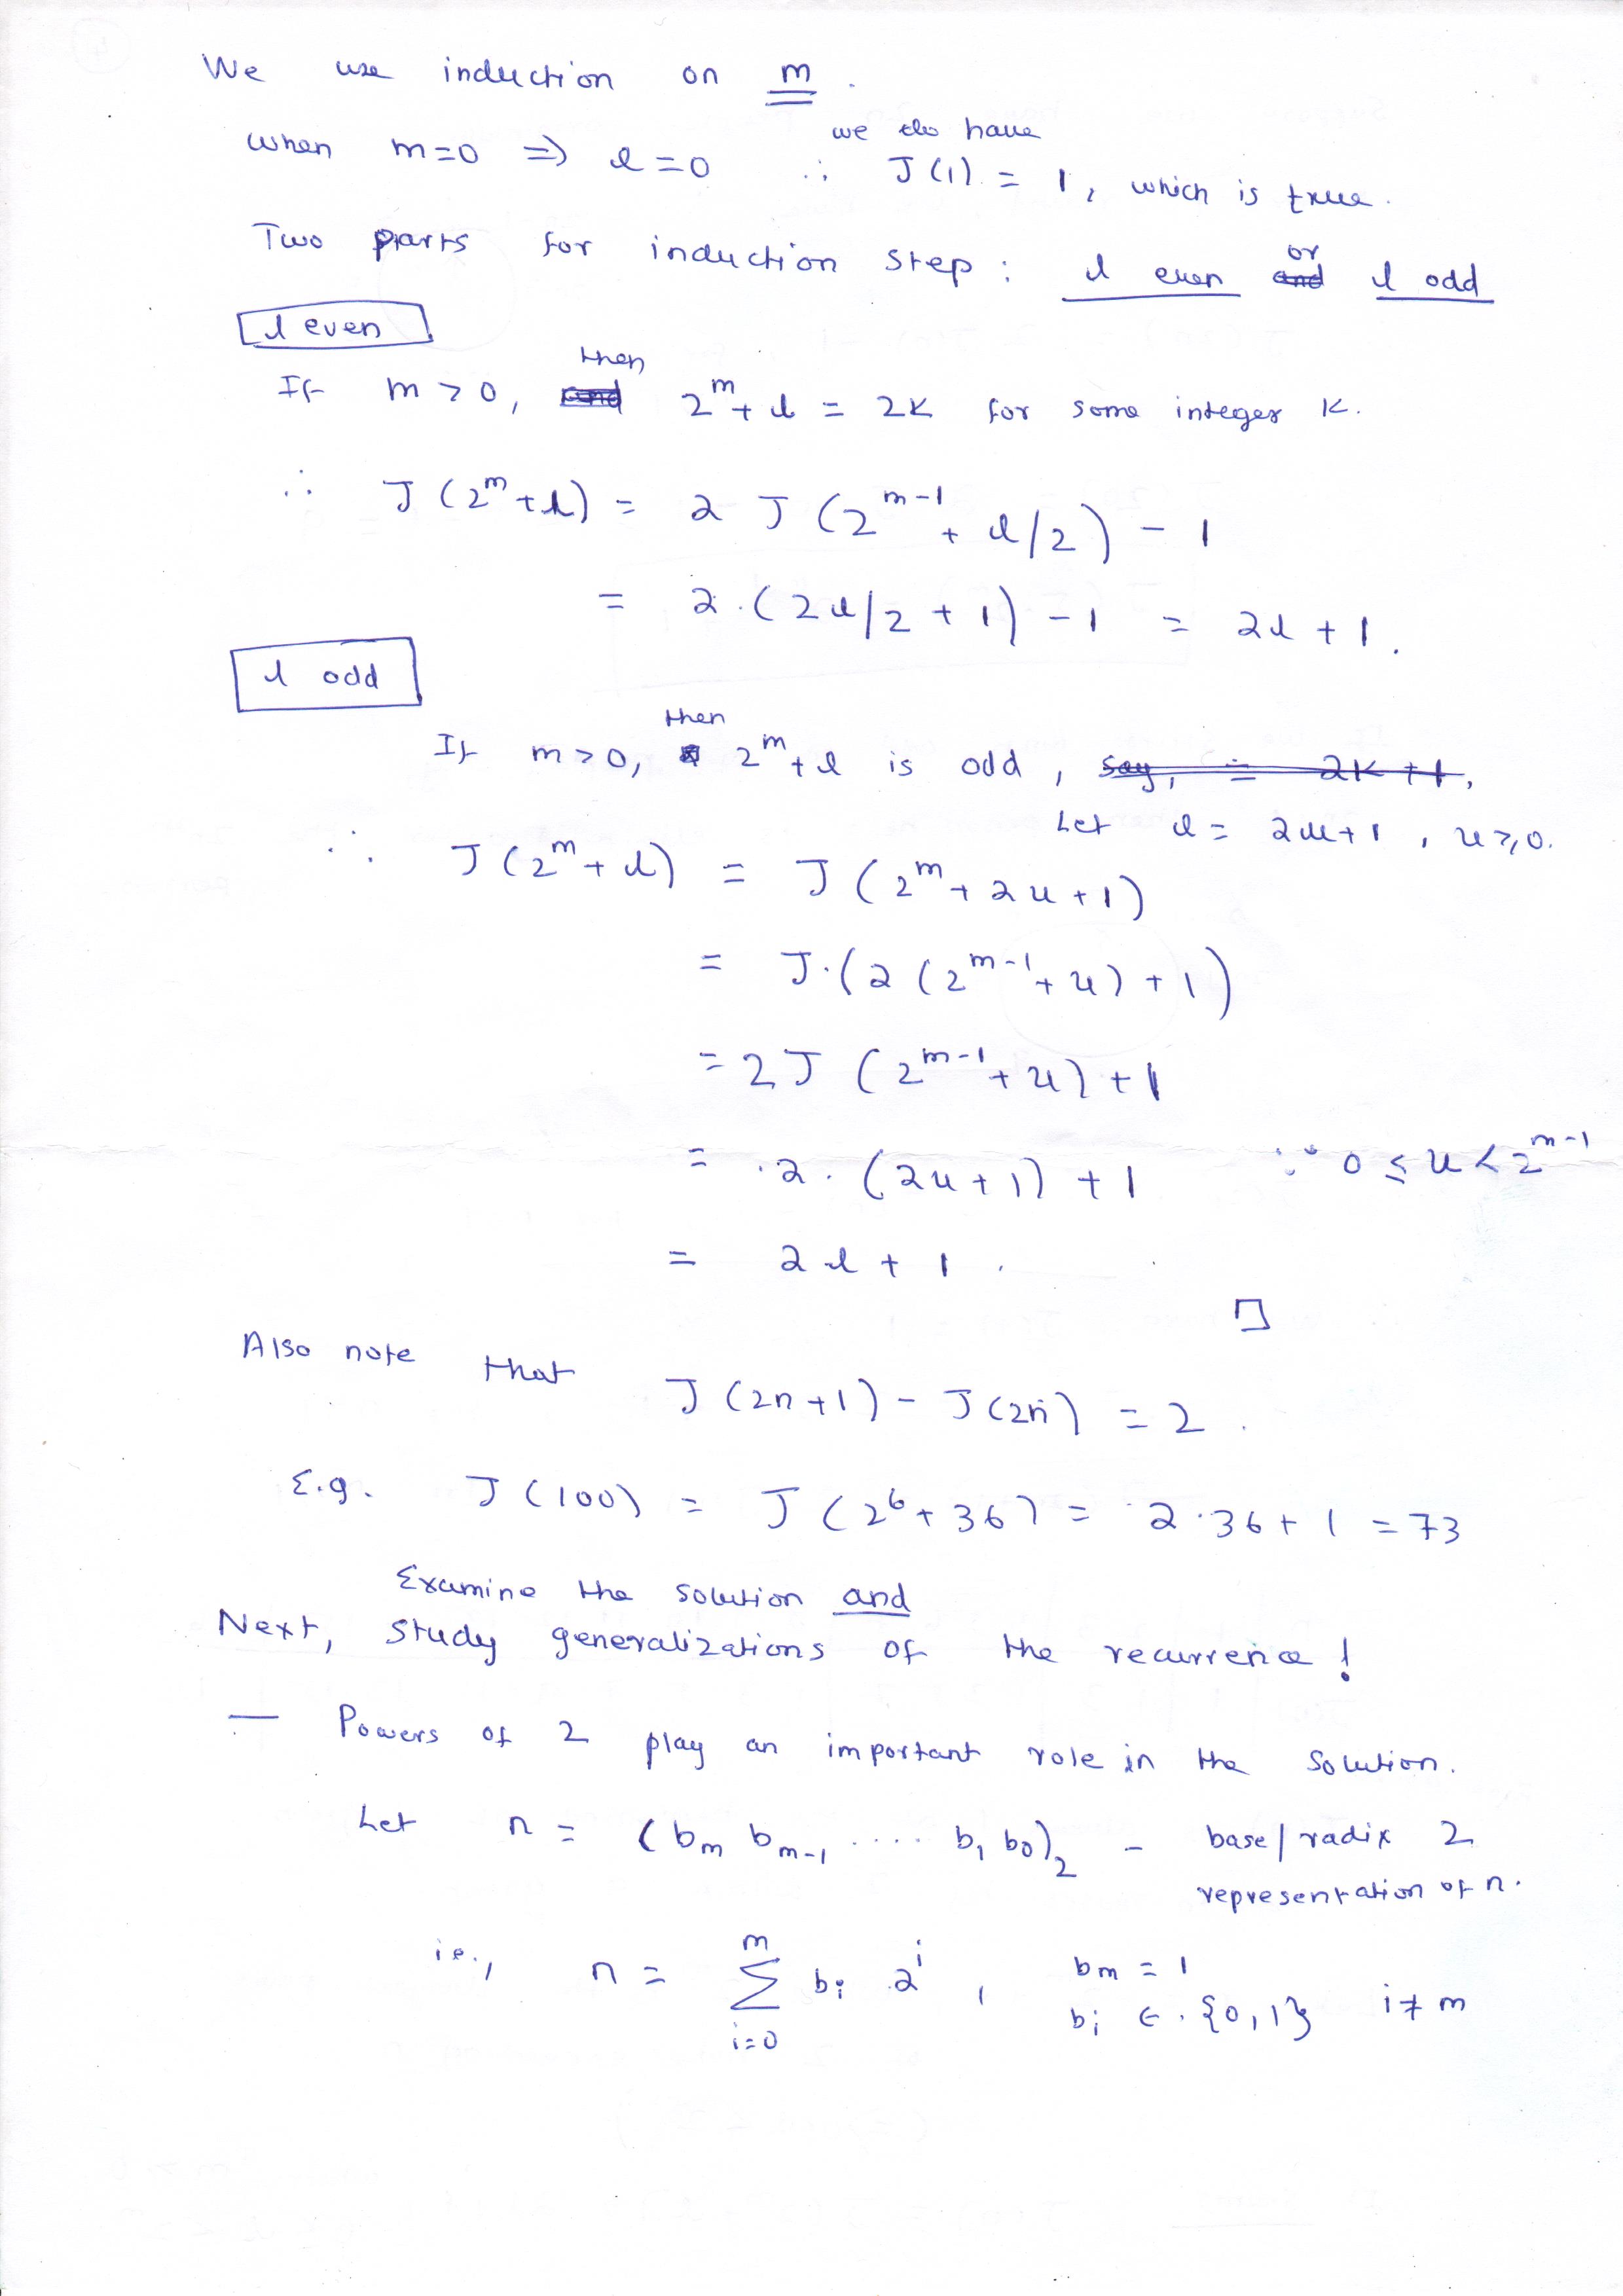 We use induction on m.
we do have
when m=0 ⇒ l=0 ∴ J(1) = 1, which is true.
Two parts for induction step: l even or l odd
and
l even
then
If m > 0, and 2^m + l = 2K for some integer K.
∴ J(2^m + l) = 2 J(2^{m-1} + l/2) - 1
= 2·(2l/2 + 1) - 1 = 2l + 1.
l odd
then
If m > 0, 2^m + l is odd, say, = 2K + 1,
Let l = 2u+1, u ≥ 0.
∴ J(2^m + l) = J(2^m + 2u + 1)
= J·(2(2^{m-1} + u) + 1)
= 2J(2^{m-1} + u) + 1
= ·2·(2u+1) + 1 ∵ 0 ≤ u < 2^{m-1}
= 2l + 1.
Also note that J(2n+1) - J(2n) = 2.
E.g. J(100) = J(2^6 + 36) = 2·36 + 1 = 73
Examine the solution and
Next, study generalizations of the recurrence!
— Powers of 2 play an important role in the solution.
Let n = (b_m b_{m-1} .... b_1 b_0)_2 - base/radix 2
representation of n.
i.e., n = ∑_{i=0}^{m} b_i 2^i, b_m = 1
b_i ∈ {0,1} i ≠ m